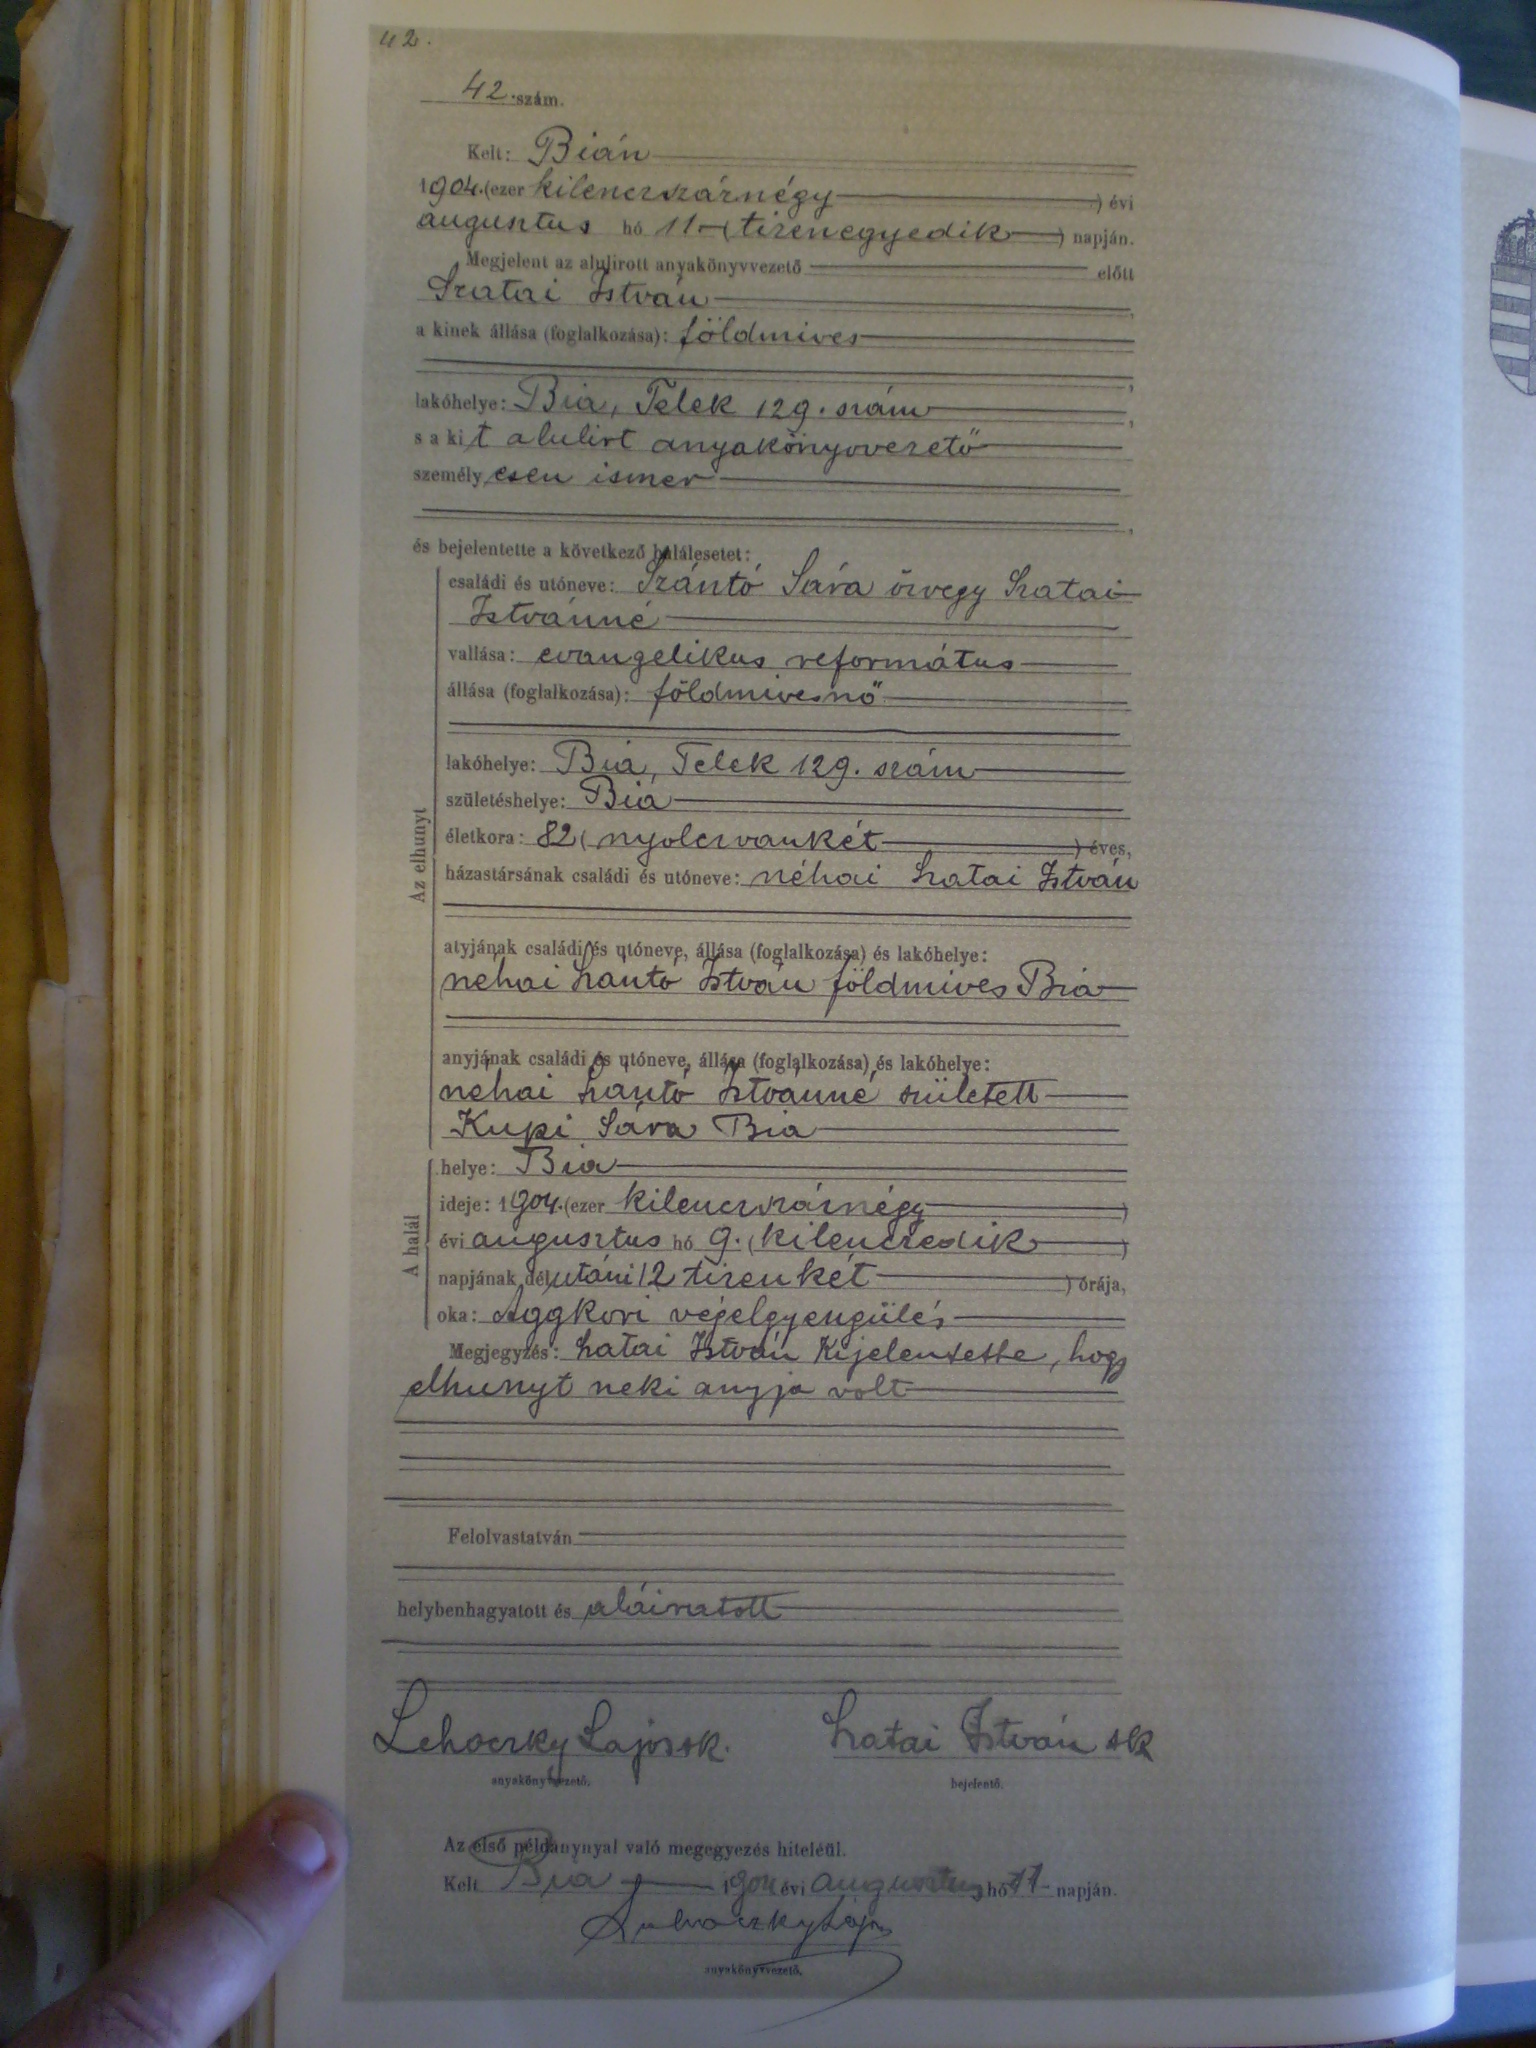 42.
42. szám.
Kelt: Bián
1904. (ezer kilenczszáznégy ) évi
augusztus hó 11 (tizenegyedik ) napján.
Megjelent az alulirott anyakönyvvezető előtt
Szatai István ,
a kinek állása (foglalkozása): földmives
,
lakóhelye: Bia, Telek 129. szám ,
s a kit alulirt anyakönyvvezető
személyesen ismer
,
és bejelentette a következő halálesetet:
Az elhunyt
családi és utóneve: Szántó Sára özvegy Szatai
Istvánné
vallása: evangelikus református
állása (foglalkozása): földmivesnő
lakóhelye: Bia, Telek 129. szám
születéshelye: Bia
életkora: 82 (nyolczvankét ) éves,
házastársának családi és utóneve: néhai Szatai István
atyjának családi és utóneve, állása (foglalkozása) és lakóhelye:
néhai Szántó István földmives Bia
anyjának családi és utóneve, állása (foglalkozása) és lakóhelye:
néhai Szántó Istvánné született
Kupi Sára Bia
A halál
helye: Bia
ideje: 1904. (ezer kilenczszáznégy )
évi augusztus hó 9. (kilenczedik )
napjának délutáni 12 tizenkét ) órája,
oka: Aggkori végelgyengülés
Megjegyzés: Szatai István kijelentette, hogy
elhunyt neki anyja volt
Felolvastatván
helybenhagyatott és aláiratott
Lehoczky Lajos sk. Szatai István sk
anyakönyvvezető. bejelentő.
Az első példánynyal való megegyezés hiteléül.
Kelt Bia 1904 évi augusztus hó 11 napján.
Lehoczky Lajos
anyakönyvvezető.